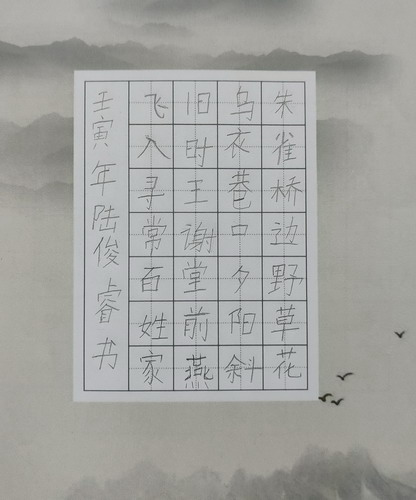 朱雀桥边野草花
乌衣巷口夕阳斜
旧时王谢堂前燕
飞入寻常百姓家
壬寅年陆俊睿书